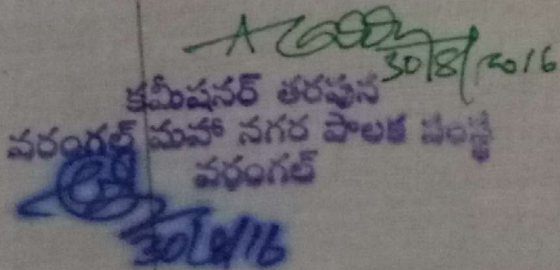 30/8/2016
కమీషనర్ తరపున
వరంగల్ మహా నగర పాలక సంస్థ
వరంగల్
30/8/16